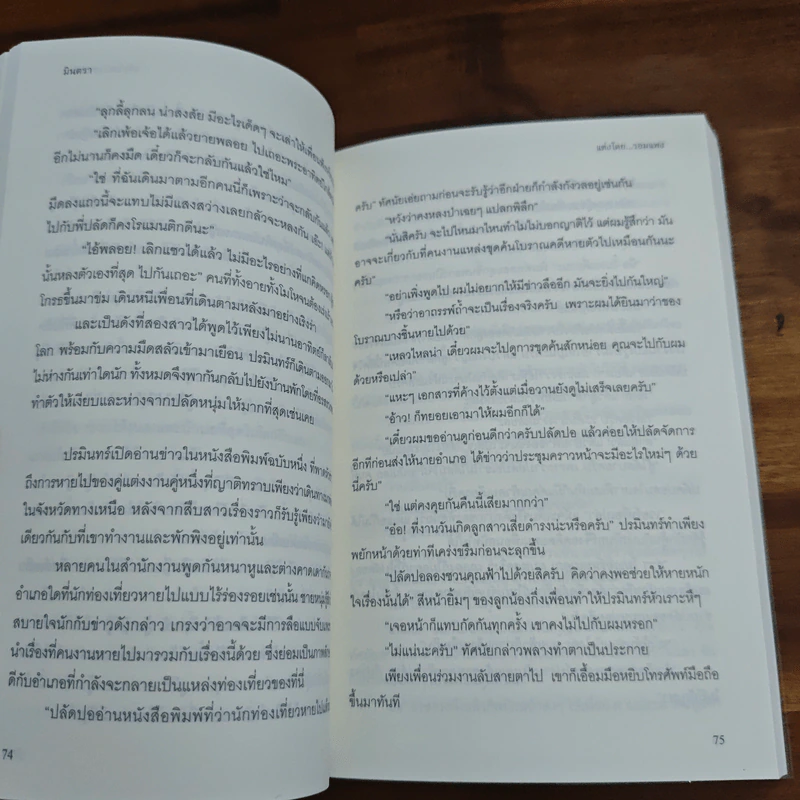 มินตรา
“ลุกลี้ลุกลน น่าสงสัย มีอะไรเด็ดๆ จะเล่าให้เพื่อน
“เลิกเพ้อเจ้อได้แล้วยายพลอย ไปเถอะพระอาทิตย์
อีกไม่นานก็คงมืด เดี๋ยวก็จะกลับกันแล้วใช่ไหม”
“ใช่ ที่ฉันเดินมาตามอีกคนนี่ก็เพราะว่าจะกลับกันแล้ว
มืดลงแถวนี้จะแทบไม่มีแสงสว่างเลยกลัวจะหลงกัน
ไปกับพี่ปลัดก็คงโรแมนติกดีนะ”
“ไอ้พลอย! เลิกแซวได้แล้ว ไม่มีอะไรอย่างที่แกคิด
นั้นหลงตัวเองที่สุด ไปกันเถอะ” คนที่ทั้งอายทั้งโมโหจน
โกรธขึ้นมาข่ม เดินหนีเพื่อนที่เดินตามหลังมาอย่างเริงร่า
และเป็นดังที่สองสาวได้พูดไว้เพียงไม่นานอาทิตย์
โลก พร้อมกับความมืดสลัวเข้ามาเยือน ปรมินทร์ก็เดินตาม
ไม่ห่างกันเท่าใดนัก ทั้งหมดจึงพากันกลับไปยังบ้านพักโดย
ทำตัวให้เงียบและห่างจากปลัดหนุ่มให้มากที่สุดเช่นเคย
ปรมินทร์เปิดอ่านข่าวในหนังสือพิมพ์ฉบับหนึ่ง
ถึงการหายไปของคู่แต่งงานคู่หนึ่งที่ญาติทราบเพียงว่าเดินทาง
ในจังหวัดทางเหนือ หลังจากสืบสาวเรื่องราวก็รับรู้เพียงว่า
เดียวกันกับที่เขาทำงานและพักพิงอยู่เท่านั้น
หลายคนในสำนักงานพูดกันหนาหูและต่างคาดเดา
อำเภอใดที่นักท่องเที่ยวหายไปแบบไร้ร่องรอยเช่นนั้น ชายหนุ่ม
สบายใจนักกับข่าวดังกล่าว เกรงว่าอาจจะมีการลือแบบ
นำเรื่องที่คนงานหายไปมารวมกับเรื่องนี้ด้วย ซึ่งย่อมเป็น
ดีกับอำเภอที่กำลังจะกลายเป็นแหล่งท่องเที่ยวของที่นี่
“ปลัดปออ่านหนังสือพิมพ์ที่ว่านักท่องเที่ยวหายไป
74
แต่งโดย...
ครับ” ทัศนัยเอ่ยถามก่อนจะรับรู้ว่าอีกฝ่ายก็กำลังกังวลอยู่เช่นกัน
“หวังว่าคงหลงป่าเฉยๆ แปลกพิลึก”
“นั่นสิครับ จะไปไหนมาไหนทำไมไม่บอกญาติไว้ แต่ผมรู้สึกว่า มัน
อาจจะเกี่ยวกับที่คนงานแหล่งขุดค้นโบราณคดีหายตัวไปเหมือนกันนะ
ครับ”
“อย่าเพิ่งพูดไป ผมไม่อยากให้มีข่าวลืออีก มันจะยิ่งไปกันใหญ่”
“หรือว่าอาถรรพ์ถ้ำจะเป็นเรื่องจริงครับ เพราะผมได้ยินมาว่าของ
โบราณบางชิ้นหายไปด้วย”
“เหลวไหลน่า เดี๋ยวผมจะไปดูการขุดค้นสักหน่อย คุณจะไปกับผม
ด้วยหรือเปล่า”
“แหะๆ เอกสารที่ค้างไว้ตั้งแต่เมื่อวานยังดูไม่เสร็จเลยครับ”
“อ้าว! ก็ทยอยเอามาให้ผมอีกก็ได้”
“เดี๋ยวผมขออ่านดูก่อนดีกว่าครับปลัดปอ แล้วค่อยให้ปลัดจัดการ
อีกทีก่อนส่งให้นายอำเภอ ได้ข่าวว่าประชุมคราวหน้าจะมีอะไรใหม่ๆ ด้วย
นี่ครับ”
“ใช่ แต่คงคุยกันคืนนี้เสียมากกว่า”
“อ๋อ! ที่งานวันเกิดลูกสาวเสี่ยดำรงน่ะหรือครับ” ปรมินทร์ทำเพียง
พยักหน้าด้วยท่าทีเคร่งขรึมก่อนจะลุกขึ้น
“ปลัดปอลองชวนคุณฟ้าไปด้วยสิครับ คิดว่าคงพอช่วยให้หายหนัก
ใจเรื่องนั้นได้” สีหน้ายิ้มๆ ของลูกน้องกึ่งเพื่อนทำให้ปรมินทร์หัวเราะหึๆ
“เจอหน้าก็แทบกัดกันทุกครั้ง เขาคงไม่ไปกับผมหรอก”
“ไม่แน่นะครับ” ทัศนัยกล่าวพลางทำตาเป็นประกาย
เพียงเพื่อนร่วมงานลับสายตาไป เขาก็เอื้อมมือหยิบโทรศัพท์มือถือ
ขึ้นมาทันที
75